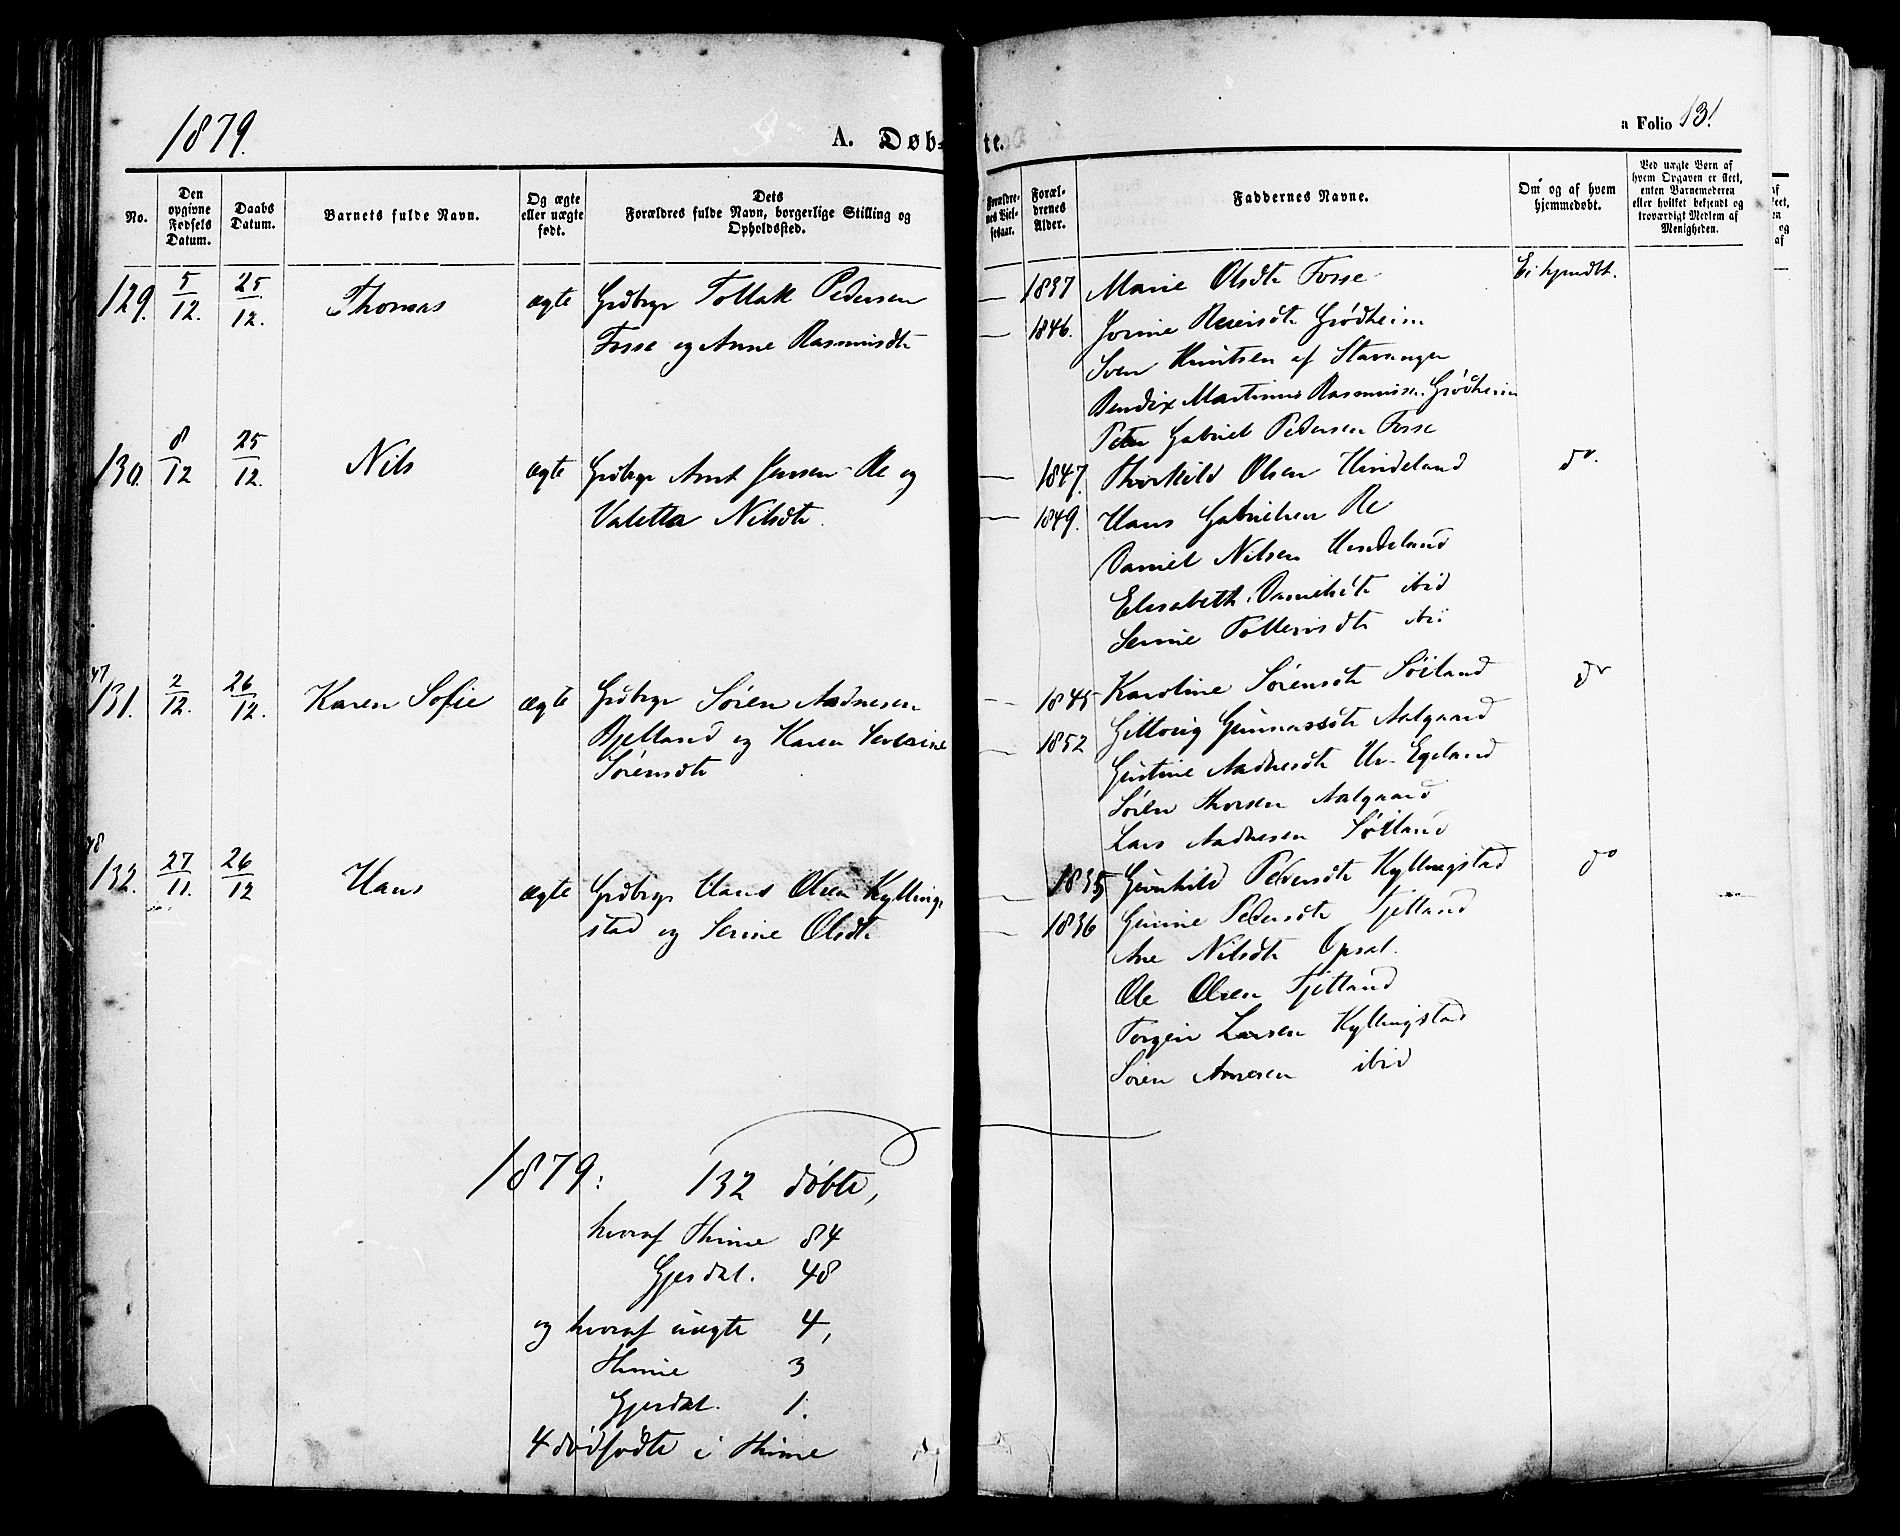 1879.
A. Døb-
te.
a Folio 131
No.
Den opgivne Fødsels Datum.
Daabs Datum.
Barnets fulde Navn.
Og ægte eller uægte født.
Dets Forældres fulde Navn, borgerlige Stilling og Opholdssted.
Forældrenes Alder.
Faddernes Navne.
Om og af hvem hjemmedøbt.
Ved uægte Børn af hvem Opgaven er skeet, enten Barnemoderen eller hvilket bekjendt og troværdigt Medlem af Menigheden.
129. 5/12. 25/12. Thomas ægte Grdbrgr Tollak Pedersen
Fosse og Anne Rasmusdtr
1837 Marie Olsdtr Fosse Ei hjmdbt.
1846. Grødheim
Sven Knutsen af Stavanger
Bendix Martinus Rasmussen Grødheim
Peter Gabriel Pedersen Fosse
130. 8/12 25/12. Nils ægte Grdbrgr Arnt Jensen Re og
Valetta Nilsdtr.
1847. Thorkild Olsen Undeland do.
1849. Hans Gabrielsen Re
Daniel Nilsen Undeland
Elisabeth Danielsdtr ibid
Serine Tollevisdtr ibid
47
131. 2/12. 26/12. Karen Sofie ægte Grdbrgr Sören Aadnesen
Bjelland og Karen Severine
Sörensdtr
1845 Karoline Sörensdtr Söiland do
1852 Gunnarsdtr Aalgaard
Gustine Aadnesdtr Egeland
Sören Thorsen Aalgaard
Lars Aadnesen Söiland
48
132. 27/11. 26/12 Hans ægte Grdbrgr Hans Olsen Kylling-
stad og Serine Olsdtr
1835 Gunhild Pedersdtr Kyllingstad do
1836 Gunne Pedersdtr Fjelland
Ane Nilsdtr Opsal.
Ole Olsen Fjelland
Torgeir Larsen Kyllingstad
Sören Arnesen ibid
1879: 132 döbte,
hvoraf Thime 84
Gjesdal. 48
og hvoraf uægte 4,
Thime 3
Gjesdal. 1.
4 dödfödte i Thime